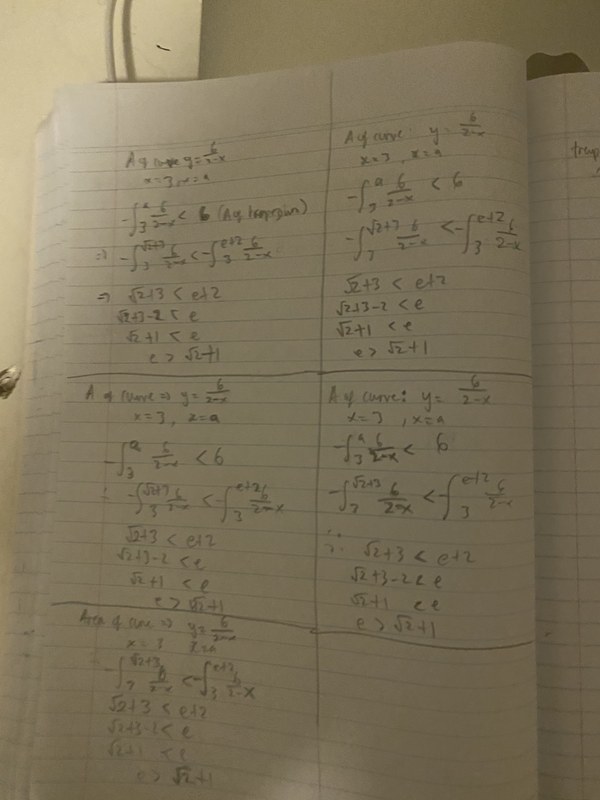 A of curve y = 6/(2-x)
x = 3, x = a
-∫₃ᵃ 6/(2-x) < 6 (A of trapezium)
=> -∫₃^(√2+3) 6/(2-x) < -∫₃^(e+2) 6/(2-x)
=> √2+3 < e+2
√2+3-2 < e
√2+1 < e
e > √2+1
A of curve: y = 6/(2-x)
x = 3, x = a
-∫₃ᵃ 6/(2-x) < 6
-∫₃^(√2+3) 6/(2-x) < -∫₃^(e+2) 6/(2-x)
√2+3 < e+2
√2+3-2 < e
√2+1 < e
e > √2+1
A of curve => y = 6/(2-x)
x = 3, x = a
-∫₃ᵃ 6/(2-x) < 6
∴ -∫₃^(√2+3) 6/(2-x) < -∫₃^(e+2) 6/(2-x)
√2+3 < e+2
√2+3-2 < e
√2+1 < e
e > √2+1
A of curve: y = 6/(2-x)
x = 3, x = a
-∫₃ᵃ 6/(2-x) < 6
-∫₃^(√2+3) 6/(2-x) < -∫₃^(e+2) 6/(2-x)
∴ √2+3 < e+2
√2+3-2 < e
√2+1 < e
e > √2+1
Area of curve => y = 6/(2-x)
x = 3 x = a
-∫₃^(√2+3) 6/(2-x) < -∫₃^(e+2) 6/(2-x)
√2+3 < e+2
√2+3-2 < e
√2+1 < e
e > √2+1